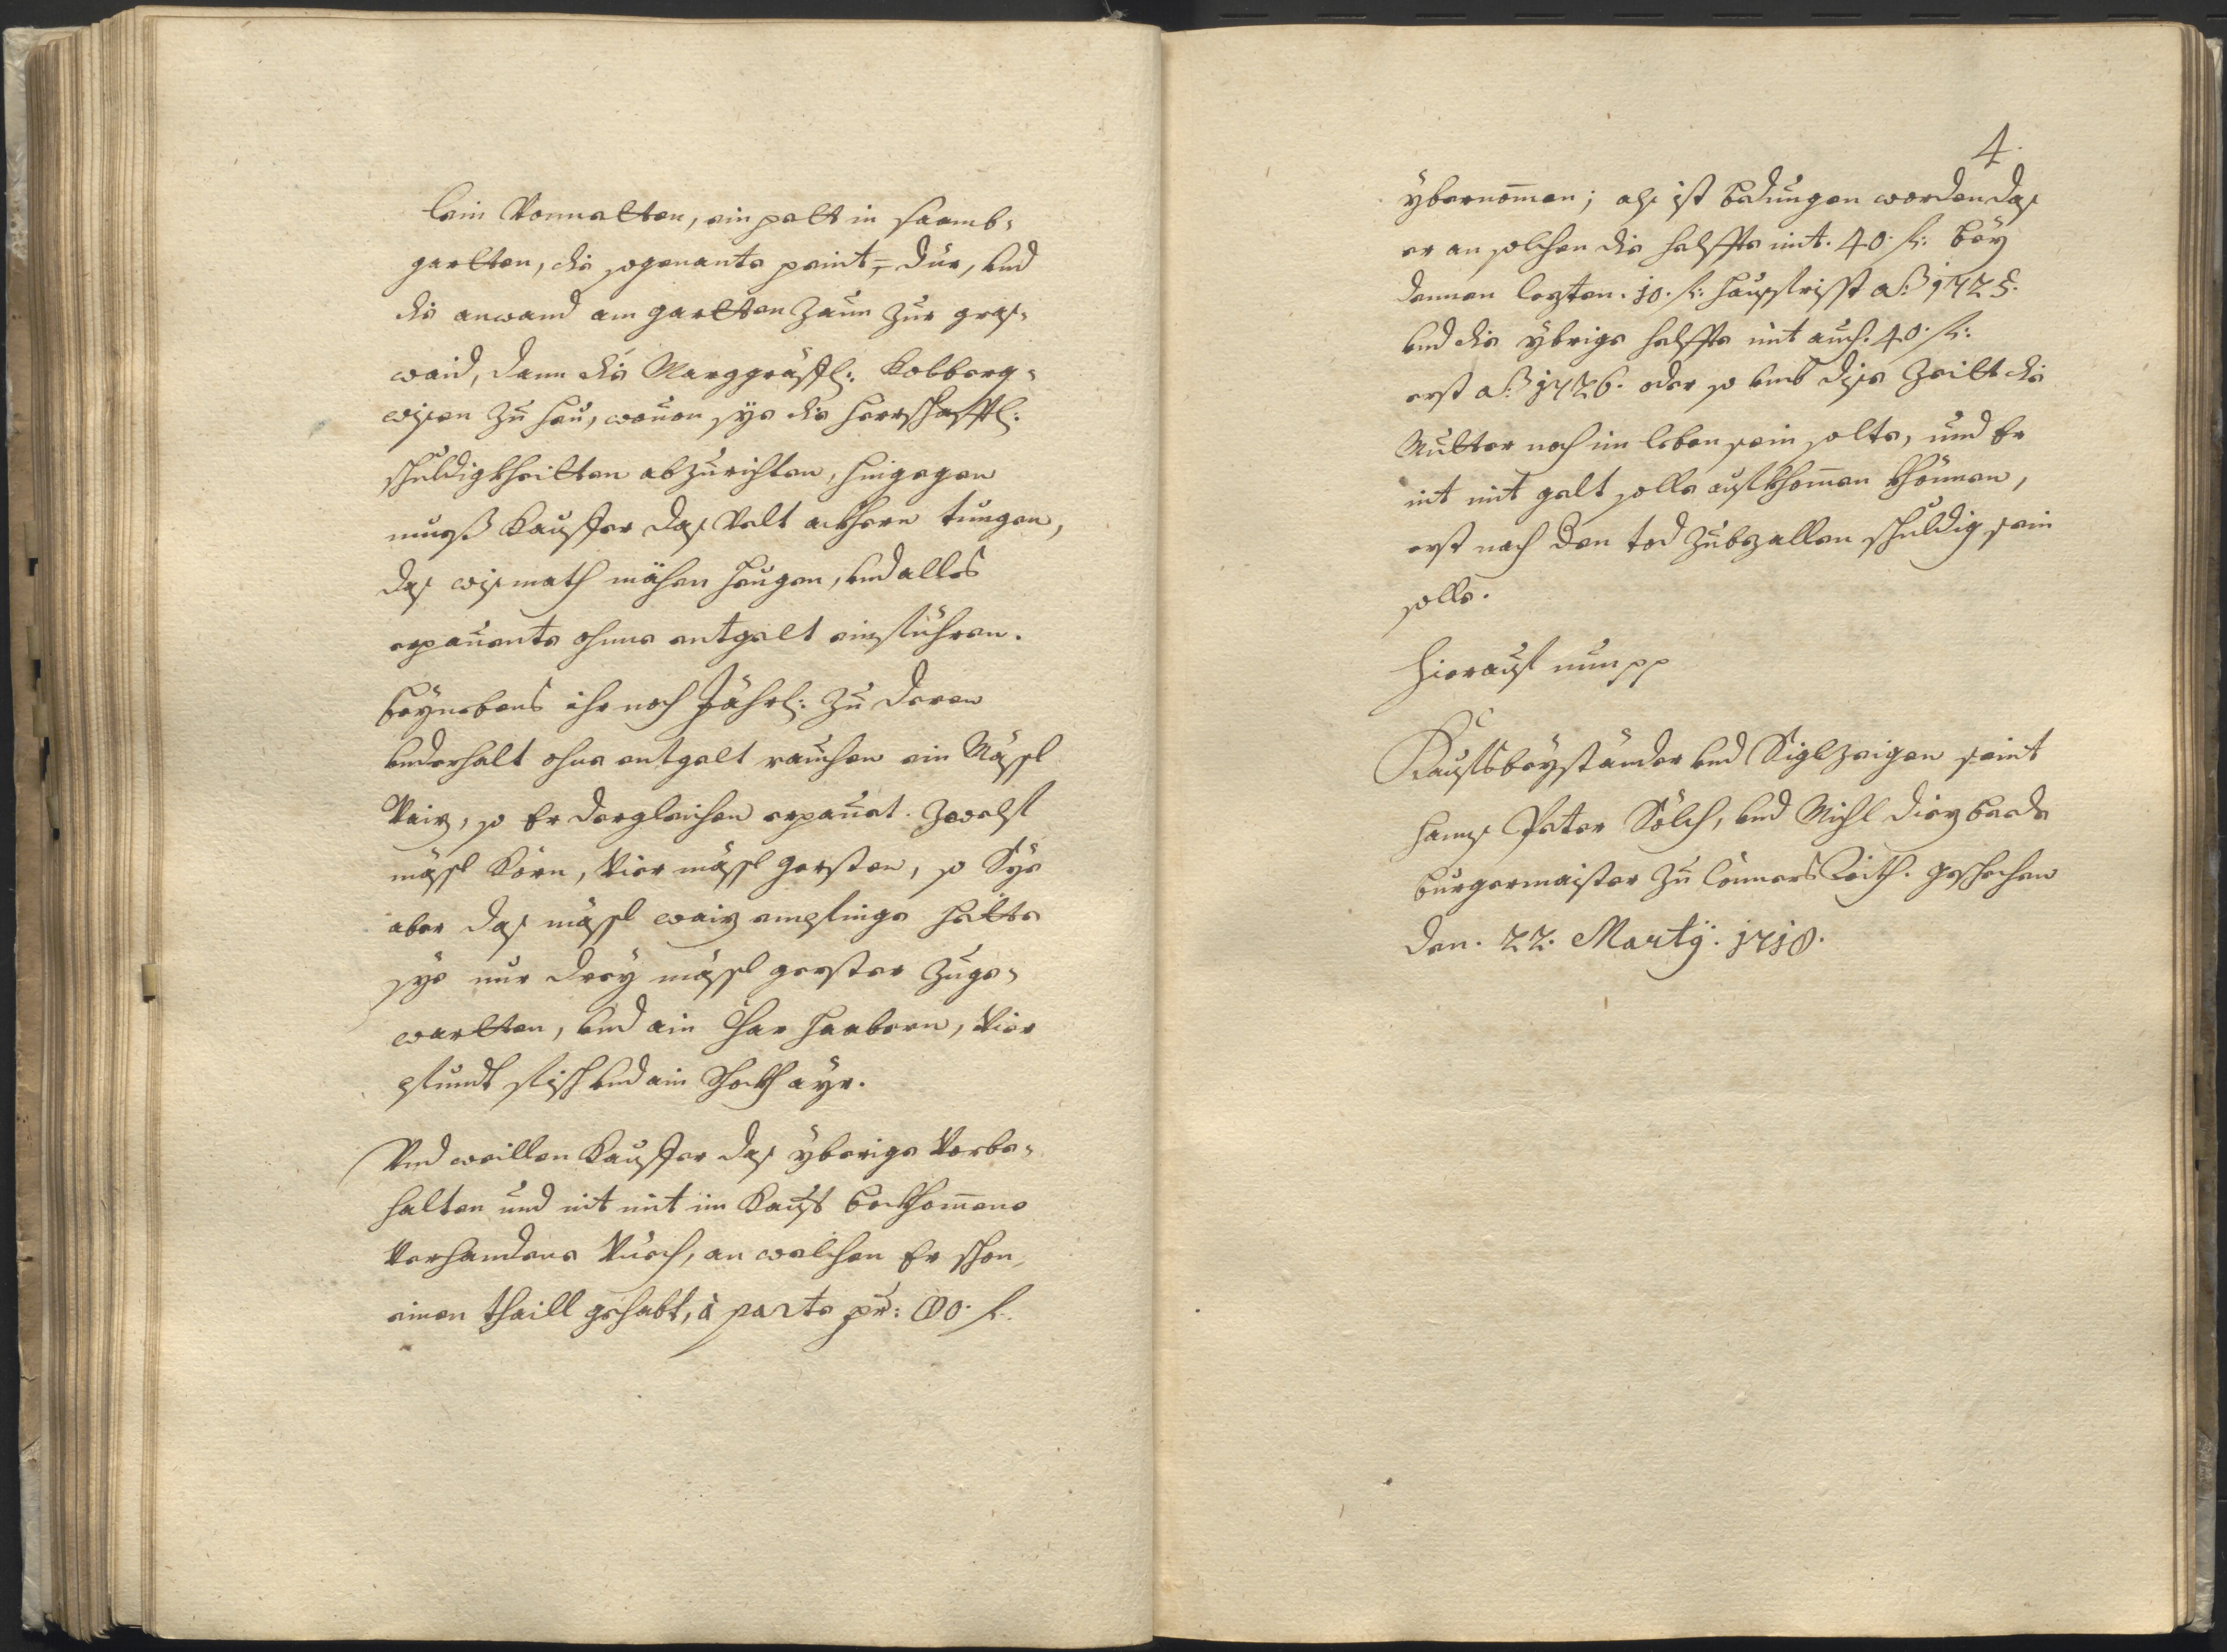 lein Vonnetten, ein pett in Kraut-
gartten, die sogenante peint=dür, und
die anwand am gartten Zaun zur graß-
waid, dann die Marggräffl: Kolberg-
wisen zu heu, wouon sye die herrschafftl:
schuldigkheitten abzurichten, hingegen
mueß Kauffer das Velt ackhern tungen,
das wismath mähen heugen, und alles
erpauente ohne entgelt einführen.
beynebens ihr noch Jährl: zu deren
underhalt ohne entgelt raichen ein Mäßl
Waiz, so Er dergleichen erpauet. Zwelf
mäßl Korn, Vier mäßl gersten, so Sye
aber das mäßl waiz empfinge hätte
sye nur drey mäßl gersten zuge-
wartten, und ain Char haabern, Vier
pfundt fisch und ain Schockh ayr.
Und weillen Kauffer das yberige Vorbe-
halten und nit mit im Kauff bekhom̄ene
Verhandene Viech, an welchen Er schon
einen thaill gehabt, à parte pr: 80. f.
4.
ybernom̄en; als ist bedungen worden das
er an solchen die helffte mit. 40. f: bey
dennen lezten. 10. f: hauffrisst aõ: 1725.
und die ybrige helffte mit auch. 40. f:
erst aõ: 1726. oder so umb dise Zeitt die
Mutter noch im leben sein solte, und Er
nit mit gelt solle aufkhom̄en khönnen,
erst nach den tod zubezallen schuldig sein
solle.
hierauf nun pp
Kauffsbeyständer und Siglzeigen seint
hanns Peter Sölch, und Michl Diez beede
burgermaister zu ConnersReith. geschechen
den. 22. Martÿ. 1718.